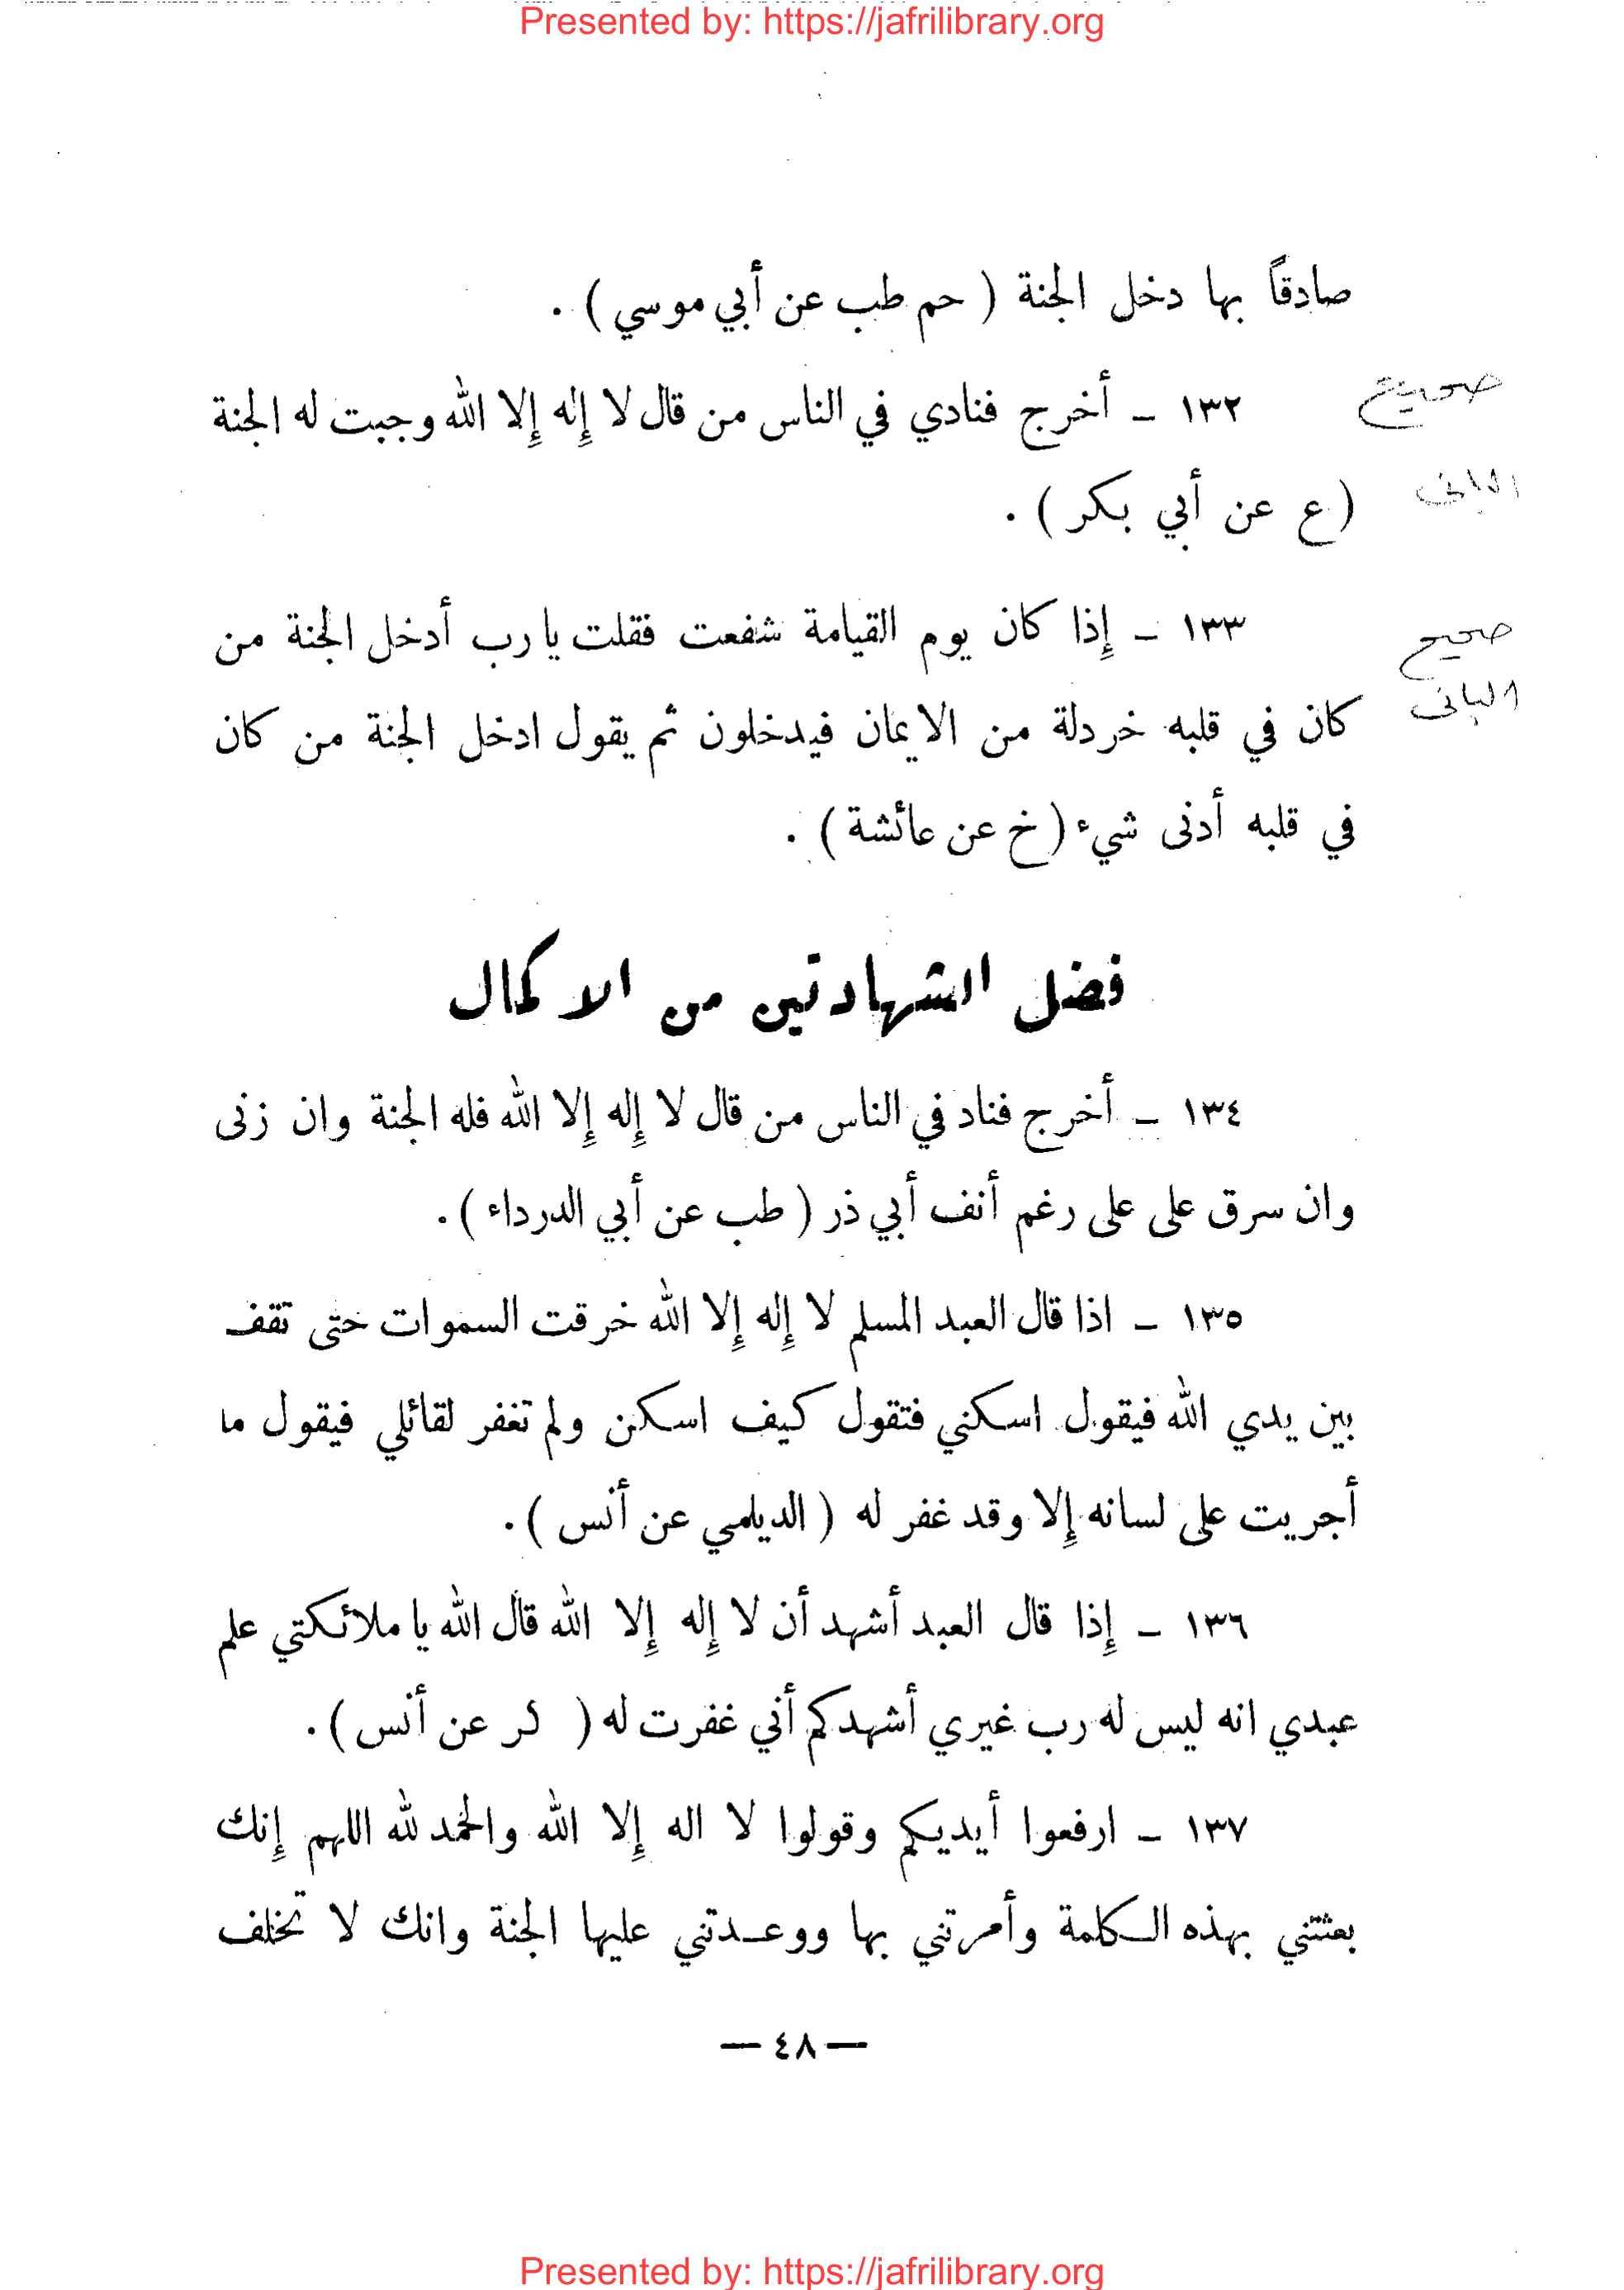 Presented by: https://jafrilibrary.org
صادقاً بها دخل الجنة ( حم طب عن أبي موسي ) .
١٣٢ ـ أخرج فنادي في الناس من قال لا إله إلا الله وجبت له الجنة
صحيح
( ع عن أبي بكر ) .
البانى
١٣٣ ـ إذا كان يوم القيامة شفعت فقلت يا رب أدخل الجنة من
صحيح
كان في قلبه خردلة من الايمان فيدخلون ثم يقول ادخل الجنة من كان
البانى
في قلبه أدنى شيء ( خ عن عائشة ) .
فضل الشهادتين من الاكمال
١٣٤ ـ أخرج فناد في الناس من قال لا إله إلا الله فله الجنة وان زنى
وان سرق على على رغم أنف أبي ذر ( طب عن أبي الدرداء ) .
١٣٥ ـ اذا قال العبد المسلم لا إله إلا الله خرقت السموات حتى تقف
بين يدي الله فيقول اسكني فتقول كيف اسكن ولم تغفر لقائلي فيقول ما
أجريت على لسانه إلا وقد غفر له ( الديلمي عن أنس ) .
١٣٦ ـ إذا قال العبد أشهد أن لا إله إلا الله قال الله يا ملائكتي علم
عبدي انه ليس له رب غيري أشهدكم أني غفرت له ( كر عن أنس ) .
١٣٧ ـ ارفعوا أيديكم وقولوا لا اله إلا الله والحمد لله اللهم إنك
بعثتني بهذه الكلمة وأمرتني بها ووعدتني عليها الجنة وانك لا تخلف
— ٤٨ —
Presented by: https://jafrilibrary.org